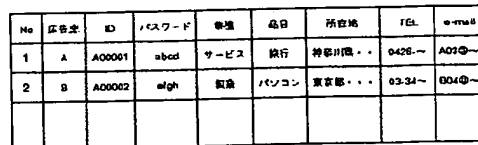 No 広告主 ID パスワード 業種 品目 所在地 TEL e-mail
1 A A00001 abcd サービス 旅行 神奈川県・・ 0426.~ A02@~
2 B A00002 efgh 製造 パソコン 東京都・・・ 03-34~ B04@~